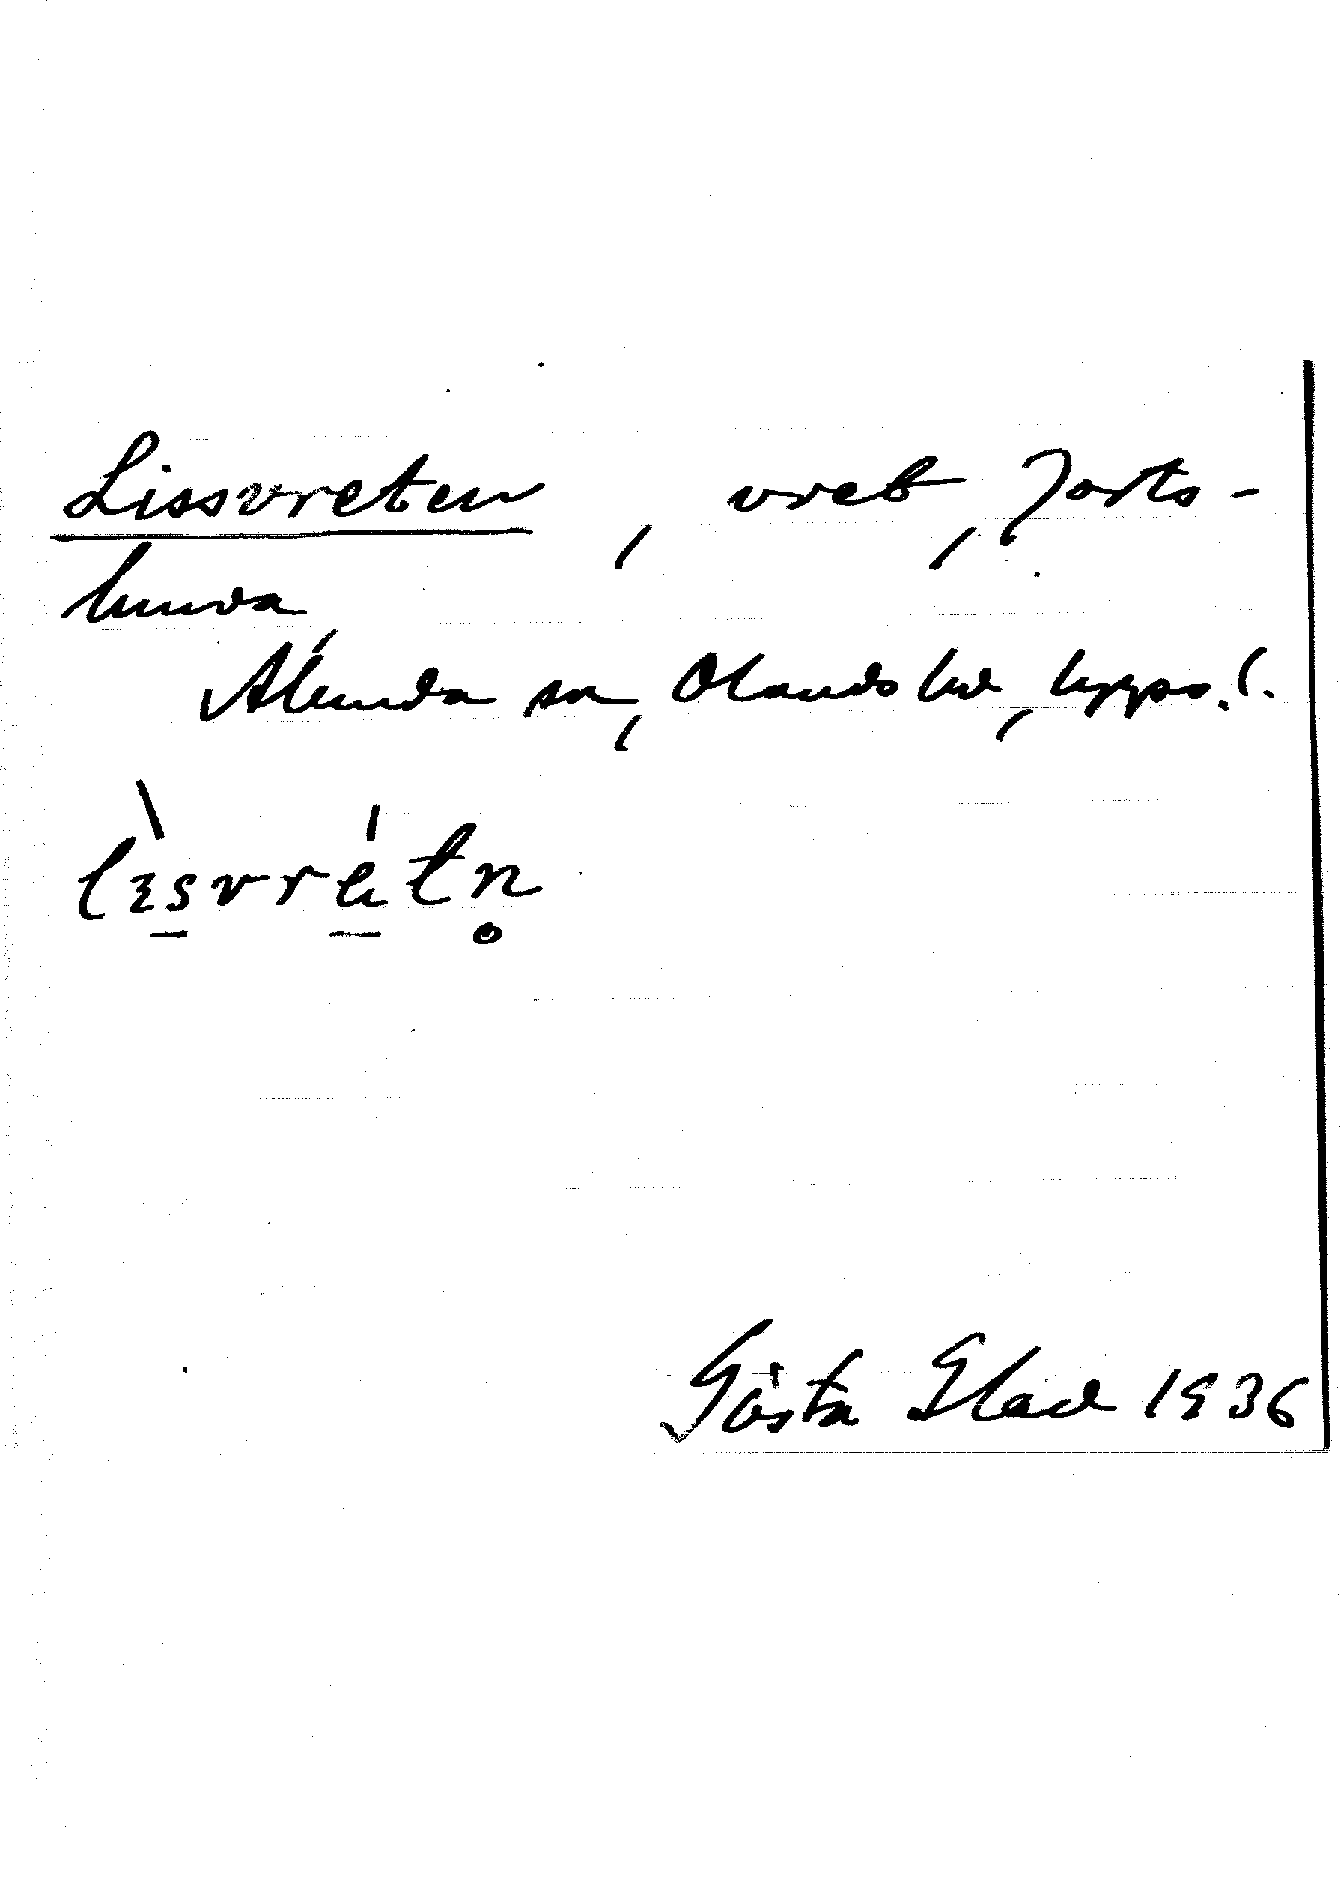 Lissvreten, vret, Jorts-
lunda,
Alunda sn, Olands hd, Upps. l.
lìsvrétn̥
Gösta Elad 1936